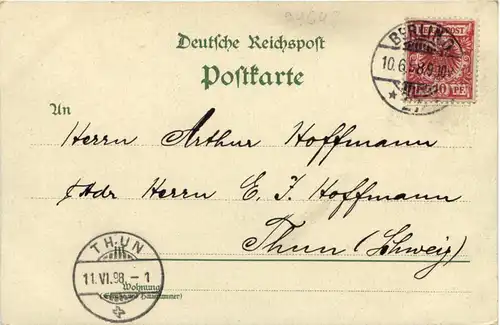 Deutsche Reichspost
Postkarte
An
Herrn Arthur Hoffmann
Adr Herrn E. J. Hoffmann
Thun (Schweiz)
BERLIN
10.6.98.9-10
REICHSPOST
10 PF
THUN
11.VI.98.-1
Wohnung
(Straße und Hausnummer)